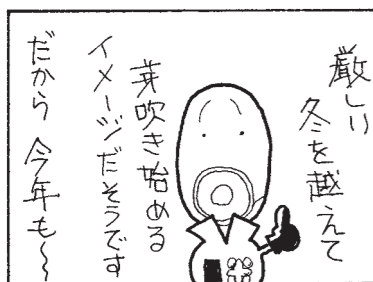 厳しい
冬を越えて
芽吹き始める
イメージだそうです
だから 今年も〜